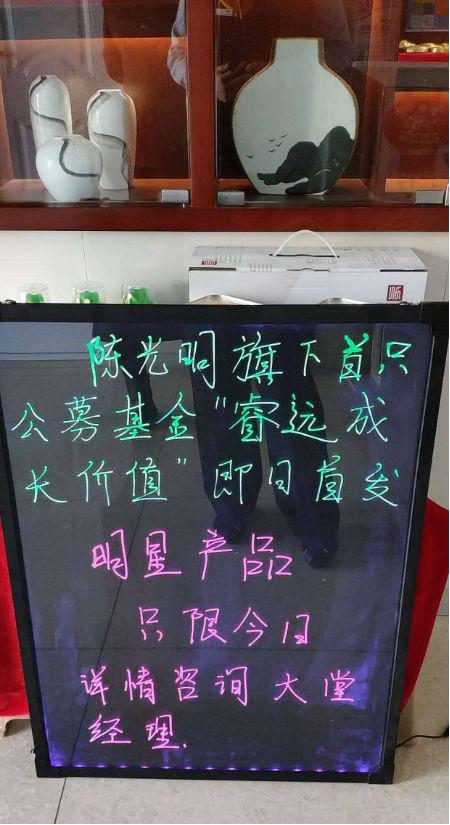 陈光明旗下首只
公募基金"睿远成
长价值"即日首发
明星产品
只限今日
详情咨询大堂
经理.